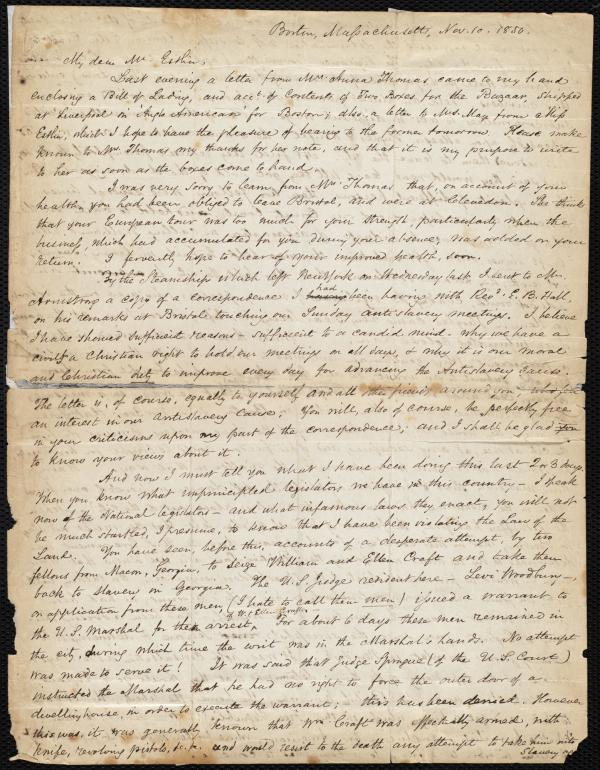 Boston, Massachusetts, Nov. 10. 1850.
My dear Mr Estlin,
Last evening a letter from Mrs Anna Thomas came to my hand
enclosing a Bill of Lading, and acct. of Contents of Two Boxes for the Bazaar, shipped
at Liverpool in Anglo American for Boston; also, a letter to Mrs. May from Miss
Estlin, which I hope to have the pleasure of bearing to the former tomorrow. Please make
known to Mrs. Thomas my thanks for her note, and that it is my purpose to write
to her as soon as the boxes come to hand.
I was very sorry to learn from Mrs Thomas that, on account of your
health, you had been obliged to leave Bristol, and were at Clevedon. She thinks
that your European tour was too much for your strength, particularly when the
business, which had accumulated for you during your absence, was added on your
return. I fervently hope to hear of your improved health, soon.
By the Steamship which left New York on Wednesday last I sent to Mr.
Armstrong a copy of a correspondence I had been having with Revd. E. B. Hall,
on his remarks at Bristol touching our Sunday antislavery meetings. I believe
I have showed sufficient reasons - sufficient to a candid mind - why we have a
civil & a Christian right to hold our meetings on all days, & why it is our moral
and Christian duty to improve every day for advancing the Antislavery Cause.
The letter is, of course, equally to yourself and all other friends around you who feel
an interest in our Antislavery Cause; You will, also of course, be perfectly free
in your criticisms upon my part of the correspondence, and I shall be glad
to know your views about it.
And now I must tell you what I have been doing this last 2 or 3 days.
When you know what unprincipled legislators we have in this country - I speak
now of the National legislators - and what infamous laws they enact, you will not
be much startled, I presume, to know that I have been violating the Law of the
Land. You have seen, before this, accounts of a desperate attempt, by two
fellows from Macon, Georgia, to seize William and Ellen Craft and take them
back to slavery in Georgia. The U.S. Judge resident here - Levi Woodbury -,
on application from these men, (I hate to call them men) issued a warrant to
the U.S. Marshal for the arrest of W. & Ellen Craft. For about 6 days these men remained in
the city, during which time the writ was in the Marshal's hands. No attempt
was made to serve it! It was said that Judge Sprague (of the U.S. Court)
instructed the Marshal that he had no right to force the outer door of a
dwellinghouse, in order to execute the warrant; this has been denied. However
this was, it was generally known that Wm Craft was effectually armed, with
knife, revolving pistols, &c. &c. and would resist to the death any attempt to take him into
slavery